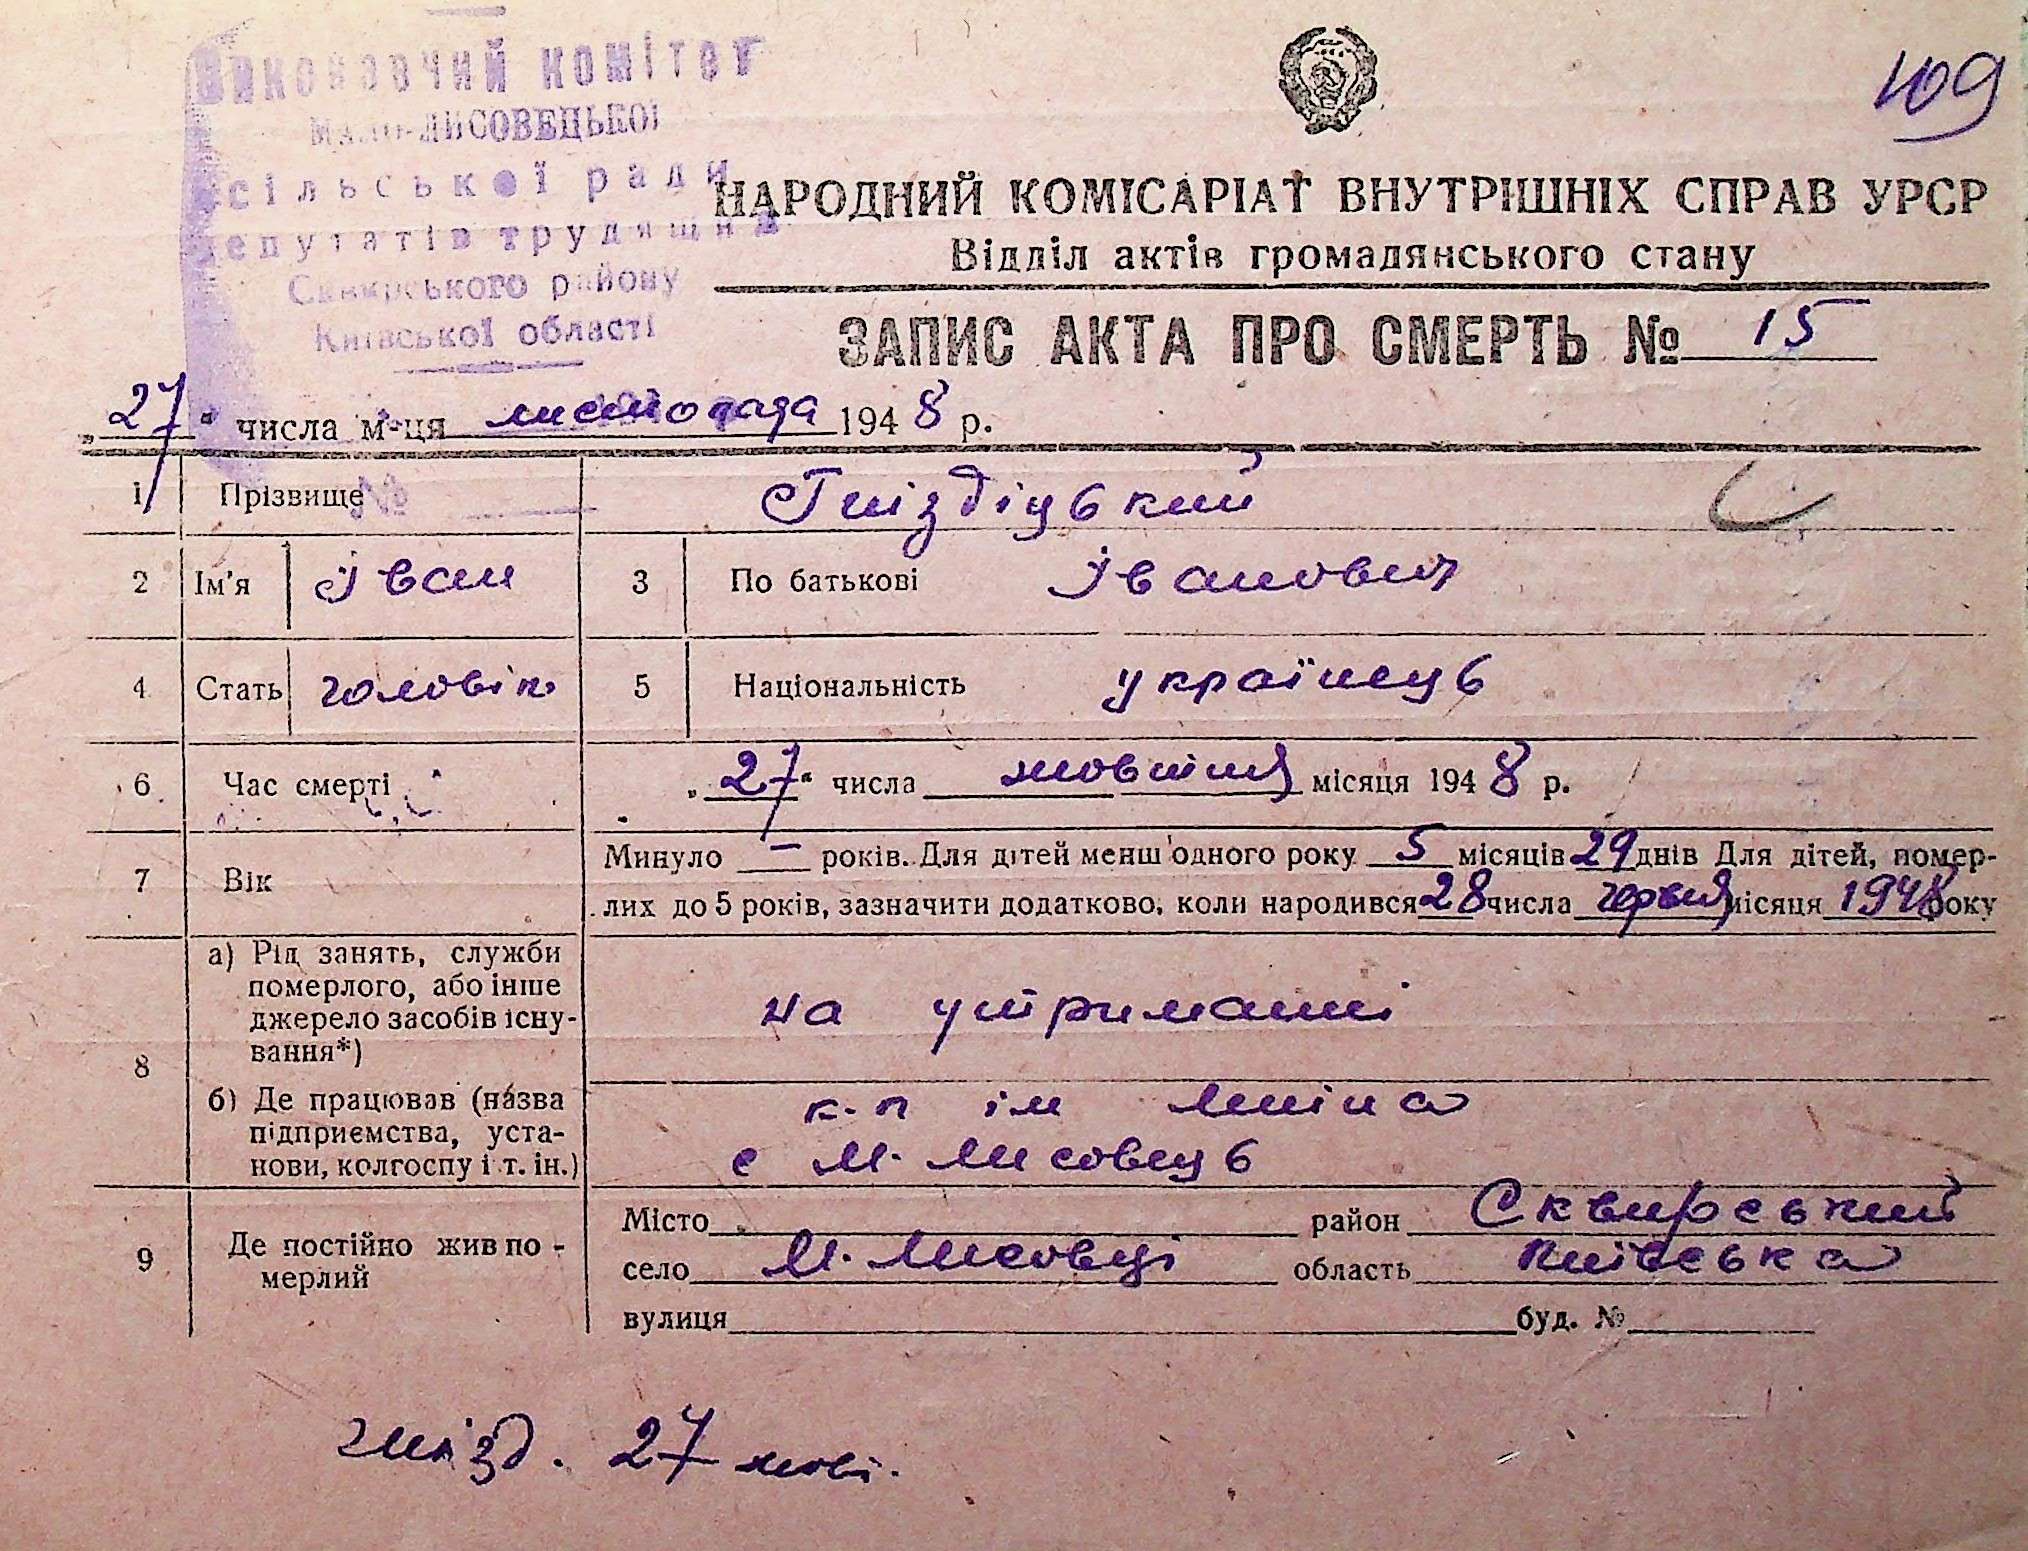 Виконавчий комітет
МАЛО-ЛИСОВЕЦЬКОЇ
сільської ради
депутатів трудящих
Сквирського району
Київської області
№
109
НАРОДНИЙ КОМІСАРІАТ ВНУТРІШНІХ СПРАВ УРСР
Відділ актів громадянського стану
ЗАПИС АКТА ПРО СМЕРТЬ № 15
„27“ числа м-ця листопада 1948 р.
1 Прізвище Гніздіцький
2 Ім'я Іван 3 По батькові Іванович
4 Стать чоловік 5 Національність українець
6 Час смерті „27“ числа жовтня місяця 1948 р.
7 Вік Минуло — років. Для дітей менш одного року 5 місяців 29 днів Для дітей, помер-
лих до 5 років, зазначити додатково, коли народився 28 числа червня місяця 1948 року
8 а) Рід занять, служби
померлого, або інше
джерело засобів існу-
вання*) на утриманні
б) Де працював (назва
підприємства, уста-
нови, колгоспу і т. ін.) к-п ім Леніна
с М. Лисовець
9 Де постійно жив по-
мерлий
Місто район Сквирський
село М. Лисовці область Київська
вулиця буд. №
гнізд. 27 жовт.